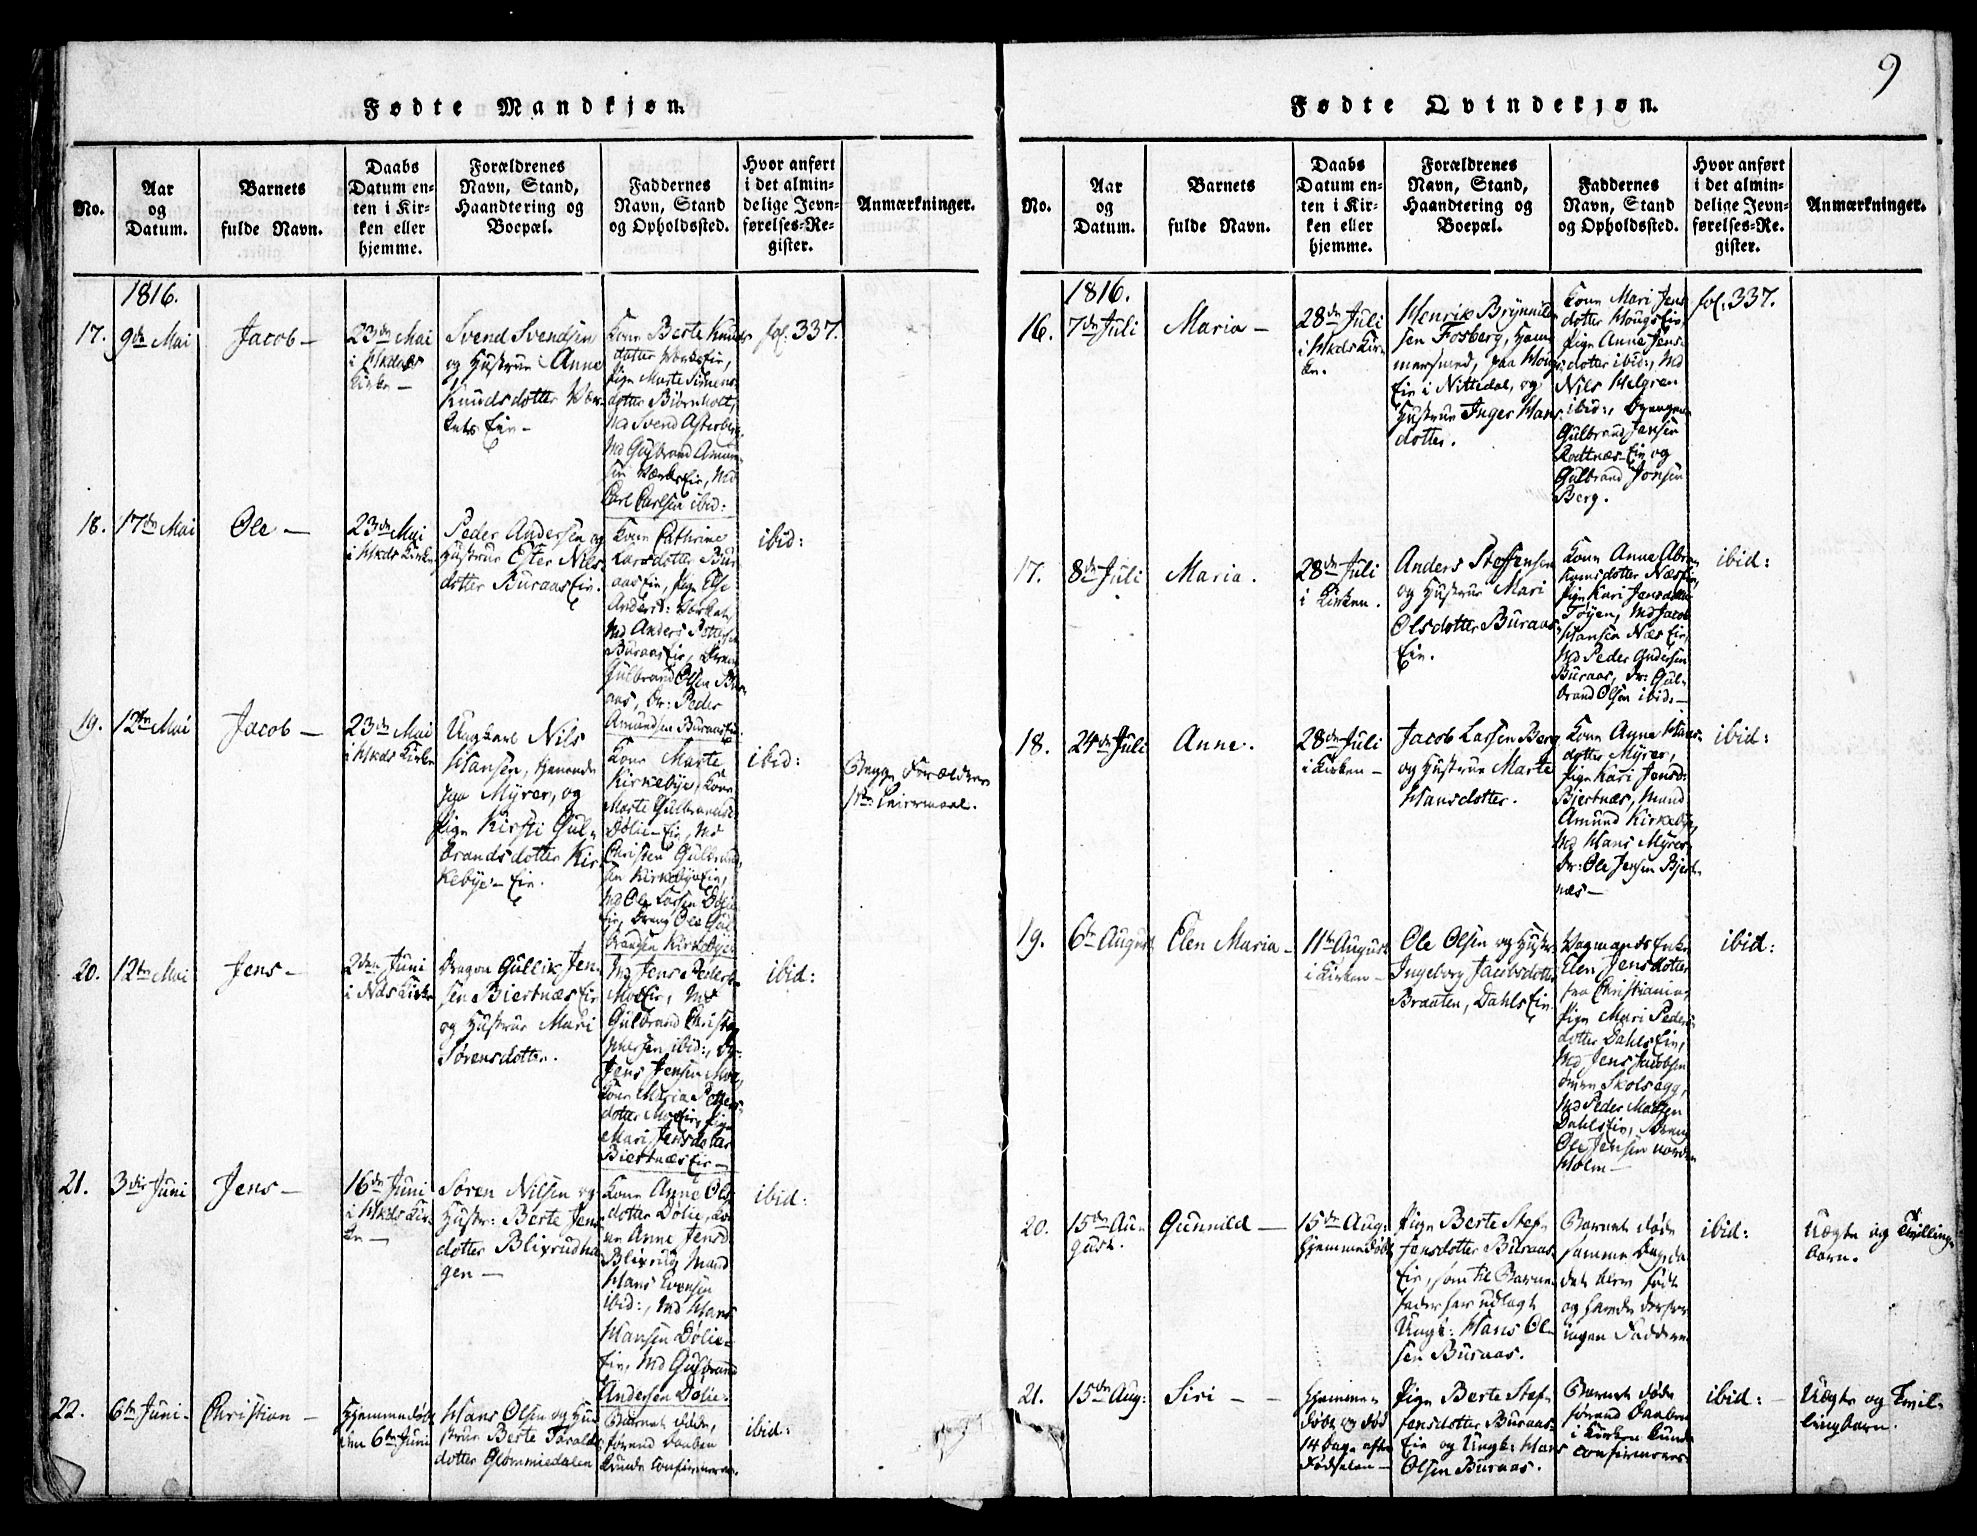 9
Fødte Mandkjøn.
No.
Aar
og
Datum.
Barnets
fulde Navn.
Daabs
Datum en-
ten i Kir-
ken eller
hjemme.
Forældrenes
Navn, Stand,
Haandtering og
Boepæl.
Faddernes
Navn, Stand
og Opholdssted.
Hvor anført
i det almin-
delige Jevn-
førelses-Re-
gister.
Anmærkninger.
1816.
17.
9de Mai
Jacob —
23de Mai
i Hkdals
Kirke —
Svend Svendsen
og Hustrue Anne
Knudsdotter
Eie —
Kone Berte Knuds
dotter
Pige Marte Simens
dotter Biørnholt,
Md Svend
Md Gulbrand
Md
Carl Carlsen ibid:
fol. 337.
18.
17de Mai
Ole —
23de Mai
i Hkds Kirke
Peder Andersen og
Hustrue Ester Nils
dotter Buraas Eie.
Kone Cathrine
Larsdotter Bur
aas Eie, Pige Else
Md Anders
Buraas Eie,
Gulbrand Olsen Bur
aas, Dr: Peder
Amundsen Buraas Eie.
ibid:
19.
12te Mai
Jacob —
23de Mai
i Hkds Kirke
Ungkarl Nils
Hansen, tjenende
paa Myrer, og
Pige Kirsti Gul-
brandsdotter Kir-
kebye-Eie.
Kone Marte
Kirkebye, Kone
Marte
Dølie-Eie, Md
Christen Gulbrand
sen Kirkebye Eie,
Md Ole Larsen Dølie
Eie, Dreng Ole Gul
brandsen Kirkebye
ibid:
Begge Forældres
1ste Leiermaal.
20.
12te Mai
Jens —
2den Juni
i Nds Kirke
Dragon Gullik Jen-
sen Biertnæs Eie
og Hustrue Mari
Sørensdotter.
Md Jens Peders
Moe Eie, Md
Gulbrand Christo
phersen ibid:, Dr:
Jens Jensen Moe,
Kone Maria
dotter Moe Eie, Pige
Mari Jensdotter
Biertnæs Eie —
ibid:
21.
3die Juni
Jens —
16de Juni
i Hkds Kir-
ke —
Søren Nilsen og
Hustr: Berte Jens
dotter Blixrudha
gen —
Kone Anne Ols
dotter Dølie, Ko
ne Anne Jensd
Blixrud, Mand
Hans Evensen
ibid:, Md Hans
Hansen Dølie-
Eie, Md Gulbrand
Andersen Dølie.
ibid:
22.
6te Juni —
Christian —
Hjemmedøbt
den 6te Juni
Hans Olsen og Hu
strue Berte Taralds
dotter Glømmiedalen
Barnet døde,
førend Daaben
kunde confirmeres.
ibid:
Fødte Qvindekjøn.
No.
Aar
og
Datum.
Barnets
fulde Navn.
Daabs
Datum en-
ten i Kir-
ken eller
hjemme.
Forældrenes
Navn, Stand,
Haandtering og
Boepæl.
Faddernes
Navn, Stand
og Opholdssted.
Hvor anført
i det almin-
delige Jevn-
førelses-Re-
gister.
Anmærkninger.
1816.
16.
7de Juli
Maria —
28de Juli
i Hkds Kir-
ke.
Henrik Brynild
sen Fosberg, Ham
mersmed, paa Houg
Eie i Nittedal, og
Hustrue Inger Hans
dotter.
Kone Mari Jens
dotter Hougs Eie,
Pige Anne Jens
dotter ibid:, Md
Nils Helgren
ibid:, Drengene
Gulbrand Jansen
Rodtnæs-Eie og
Gulbrand Jonsen
Berg.
fol. 337.
17.
8de Juli
Maria.
28de Juli
i Kirken.
Anders Steffensen
og Hustrue Mari
Olsdotter Buraas
Eie.
Kone Anne Abra
hamsdotter Næs Eie,
Pige Kari Jensdotter
Tøyen, Md Jacob
Hansen Næs Eie,
Md Peder Andersen
Buraas, Dr: Gul-
brand Olsen ibid: —
ibid:
18.
24de Juli
Anne.
28de Juli
i Kirken —
Jacob Larsen Berg
og Hustrue Marte
Hansdotter.
Kone Anne Hans
dotter Myrer,
Pige Kari Jensd:
Bjertnæs, Mand
Amund Kirkebye,
Md Hans Myrer,
Dr: Ole Jensen Bjert-
næs —
ibid:
19.
6te August
Elen Maria —
11te August
i Kirken —
Ole Olsen og Hustr
Ingeborg Jacobsdotter
Braaten, Dahls Eie.
Vogmands Enke
Elen Jensdotter
fra Christiania,
Pige Mari Peders
dotter Dahls Eie,
Md Jens Jacobsen
Skolsegg,
Md Peder
Dahls Eie, Dreng
Ole Jensen nordre
Holm —
ibid:
20.
15de Au-
gust.
Gunnild —
15de Aug:
Hjemmedøbt
Pige Berte Stef-
fensdotter Buraas
Eie, som til Barne
fader har udlagt
Ungk: Hans Ol-
sen Buraas.
Barnet døde
samme Dag, da
det blev født
og havde derfor
ingen Faddere
ibid:
Uægte og Tvillinge
barn.
21.
15de Aug:
Siri —
Hjemme-
døbt og død
14 Dage efter
Fødselen —
Pige Berte Stef-
fensdotter Buraas-
Eie og Ungk: Hans
Olsen Buraas.
Barnet døde
førend Daaben
i Kirken kunde
confirmeres
ibid: —
Uægte og Tvil-
lingbarn.